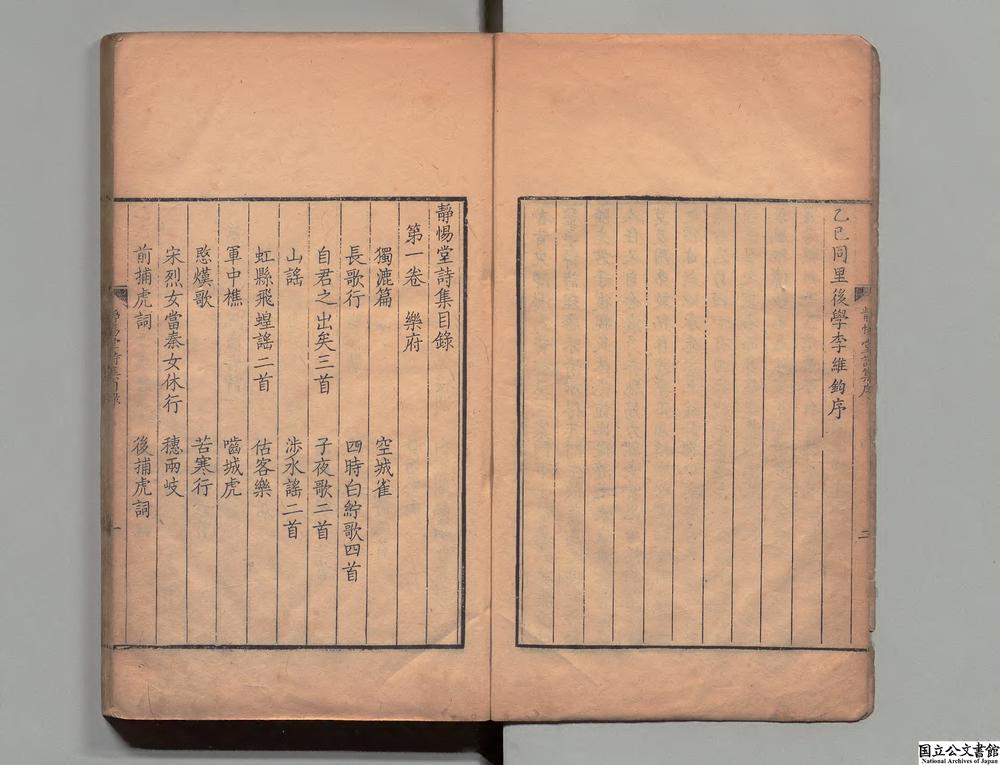 乙巳同里後學李維鈞序
靜惕堂詩集序
二
靜惕堂詩集目錄
第一卷 樂府
獨漉篇 空城雀
長歌行 四時白紵歌四首
自君之出矣三首 子夜歌二首
山謠 涉水謠二首
虹縣飛蝗謠二首 估客樂
軍中樵 嚙城虎
愍熯歌 苦寒行
宋烈女當秦女休行 穗兩岐
前捕虎詞 後捕虎詞
靜惕堂詩集目錄
一
国立公文書館
National Archives of Japan